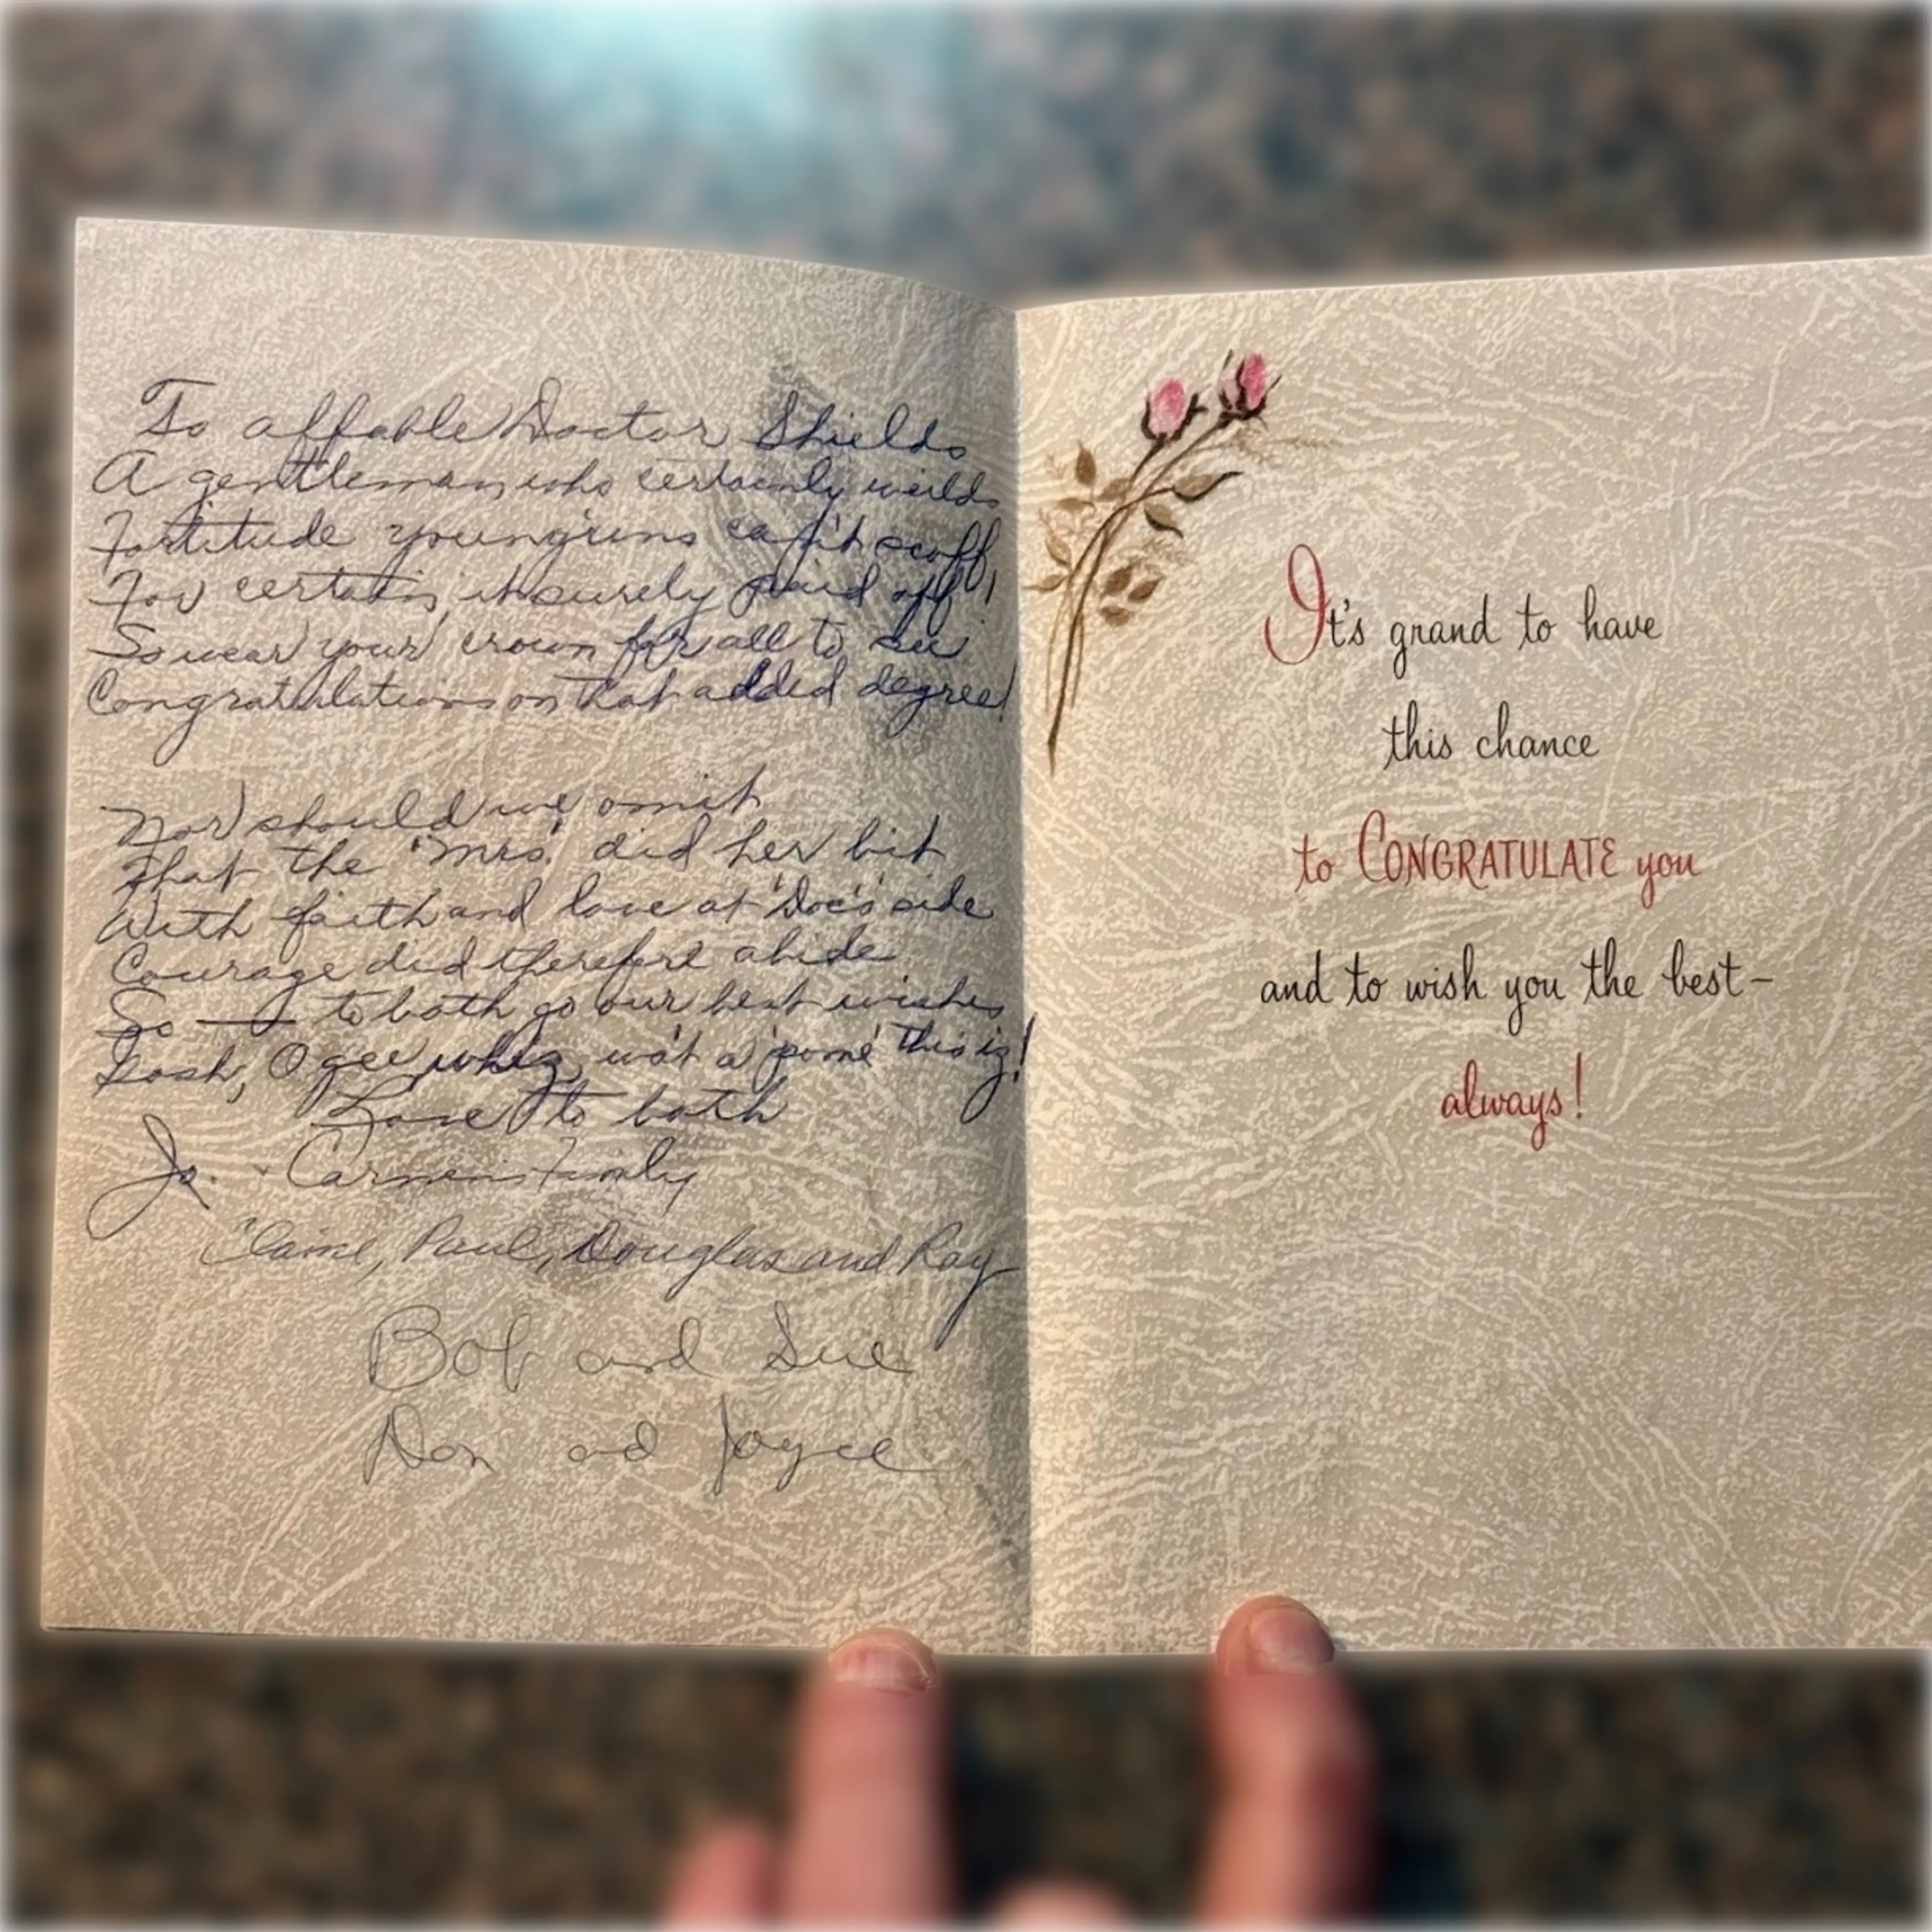 To affable Doctor Shields
A gentleman who certainly weilds
Fortitude young'uns can't scoff
For certain, it surely paid off!
So wear your crown for all to see
Congratulations on that added degree!
Nor should we omit
That the 'Mrs.' did her bit
With faith and love at 'Doc's' side
Courage did therefore abide
So — to both go our best wishes
Gosh, O gee whiz, wot a 'pome' this iz!
Love to both
Jo.
Elaine, Paul, Douglas and Ray
Bob and Sue
Don and Joyce
It's grand to have
this chance
to CONGRATULATE you
and to wish you the best-
always!